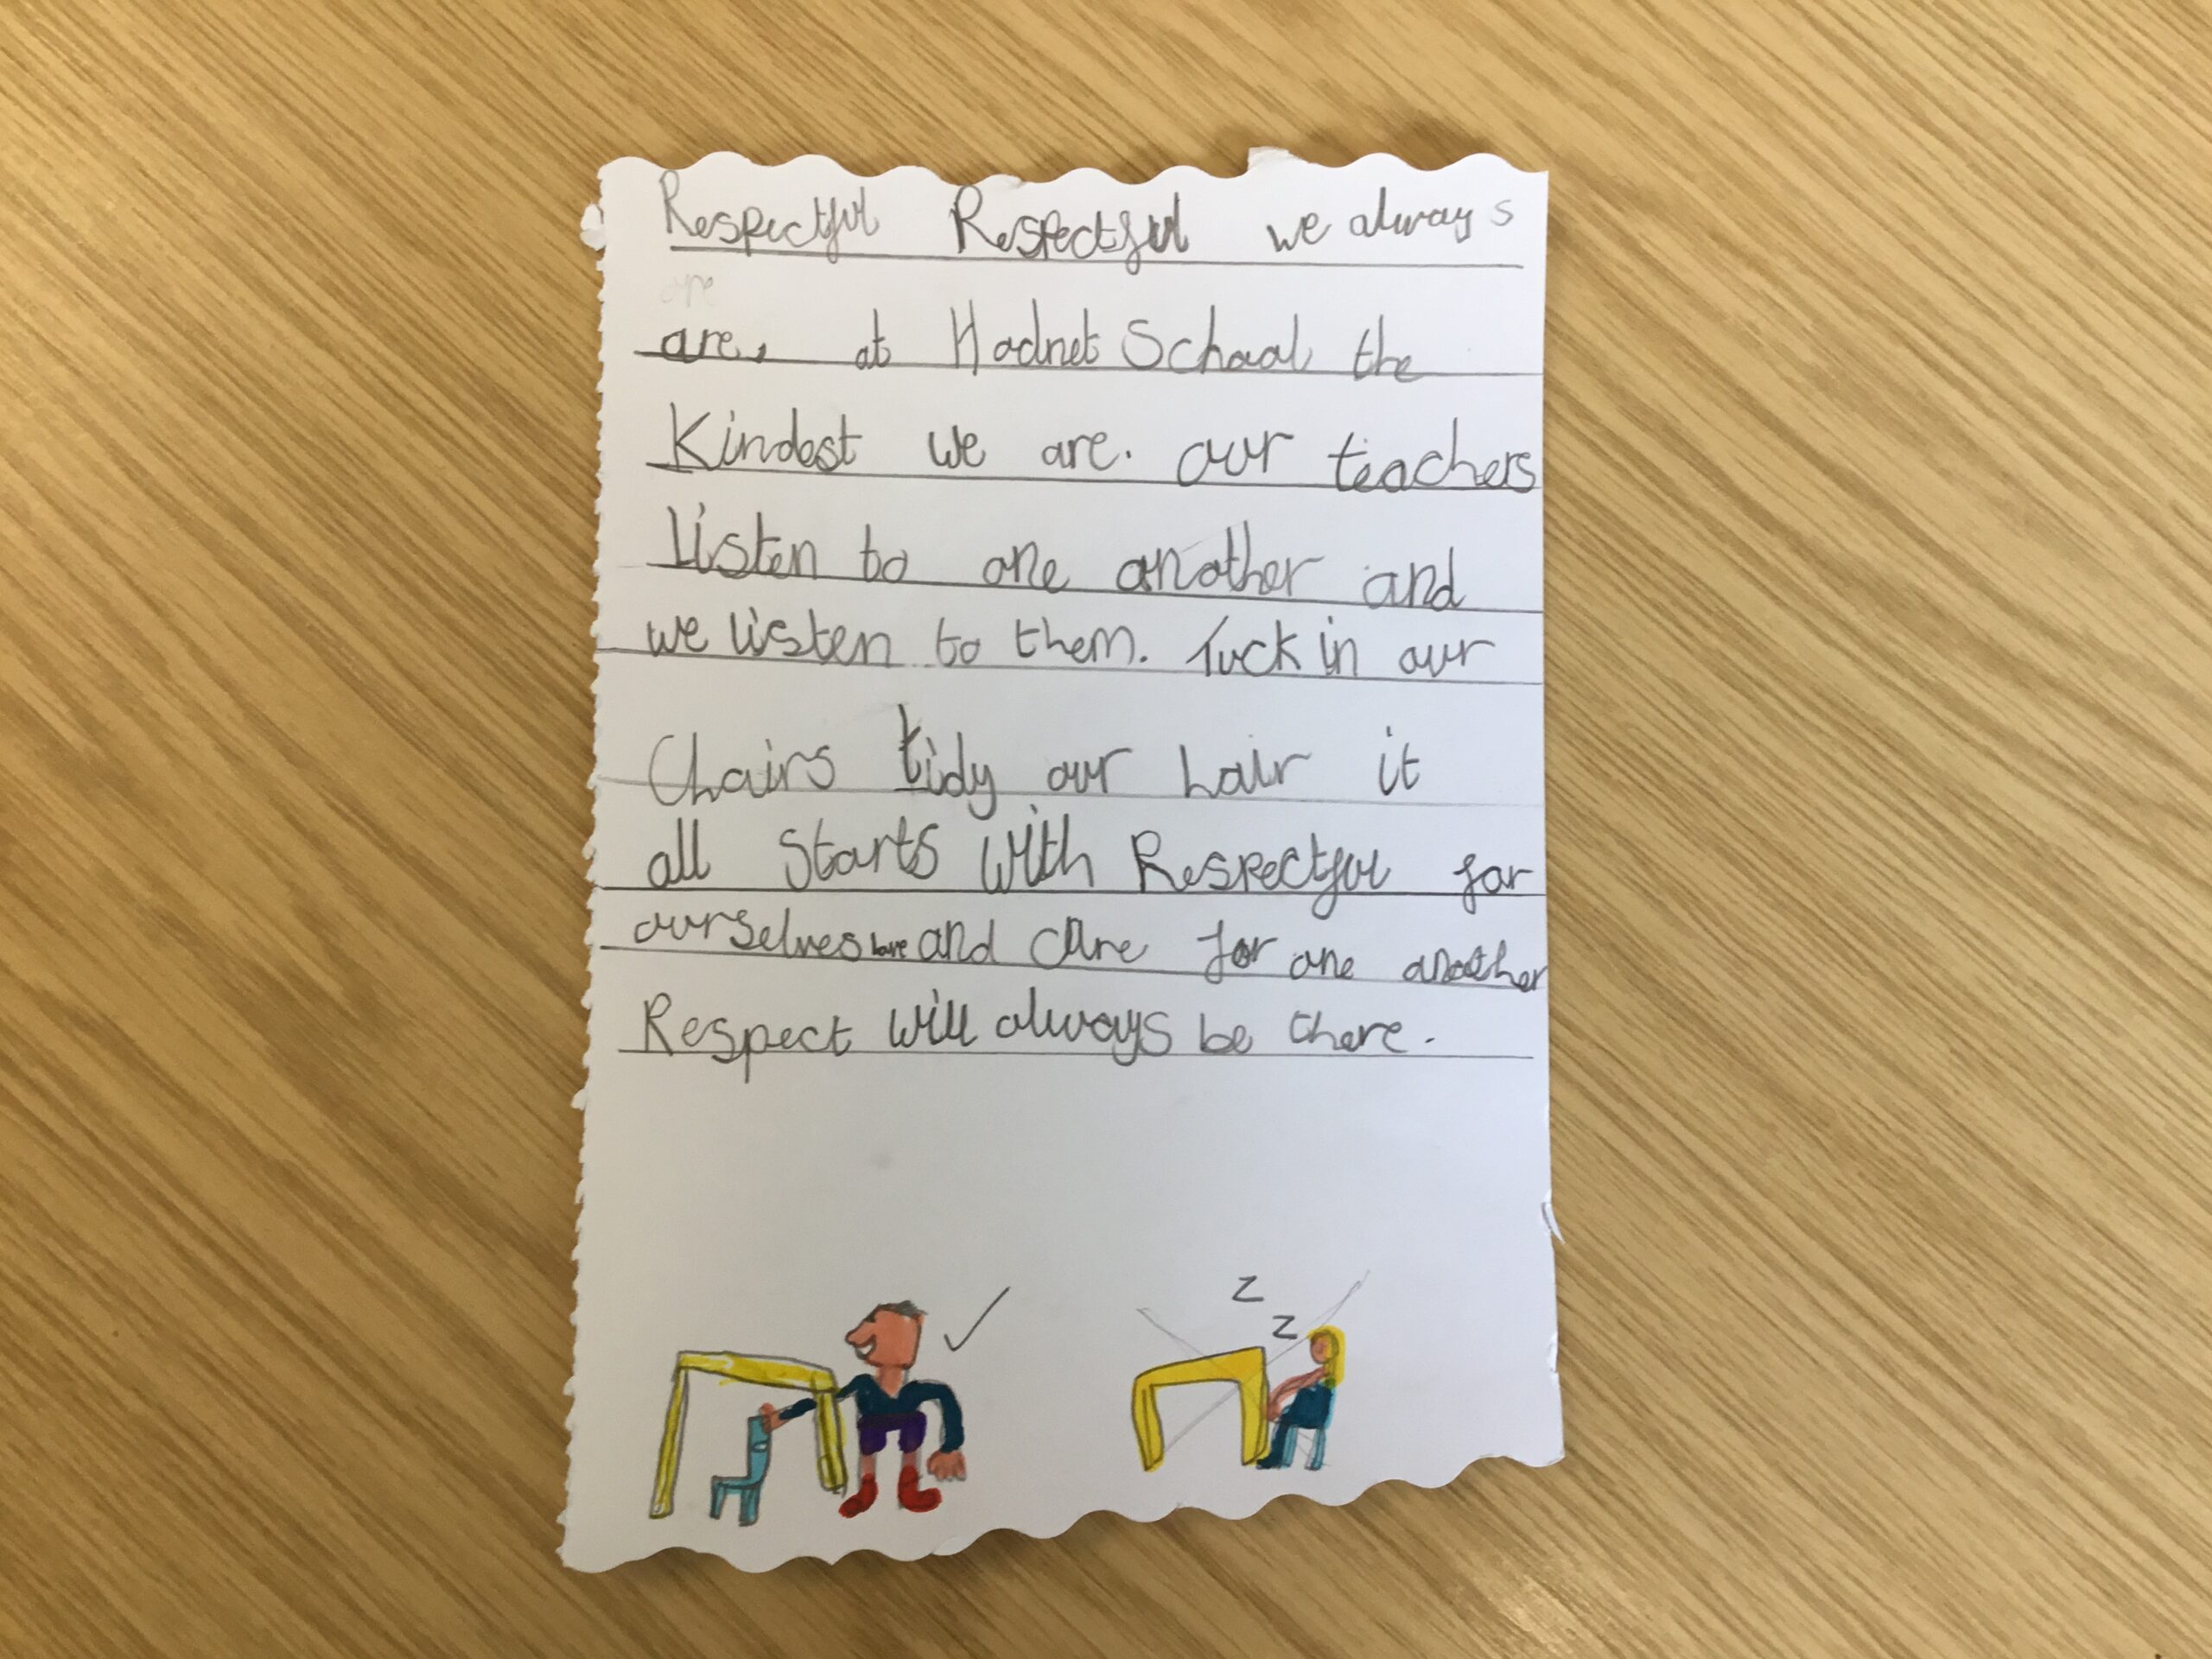 Respectful Respectful we always
are
are, at Hodnet School the
Kindest we are. our teachers
Listen to one another and
we listen to them. Tuck in our
Chairs tidy our hair it
all starts with Respectful for
ourselves love and care for one another
Respect will always be there.
Z
Z